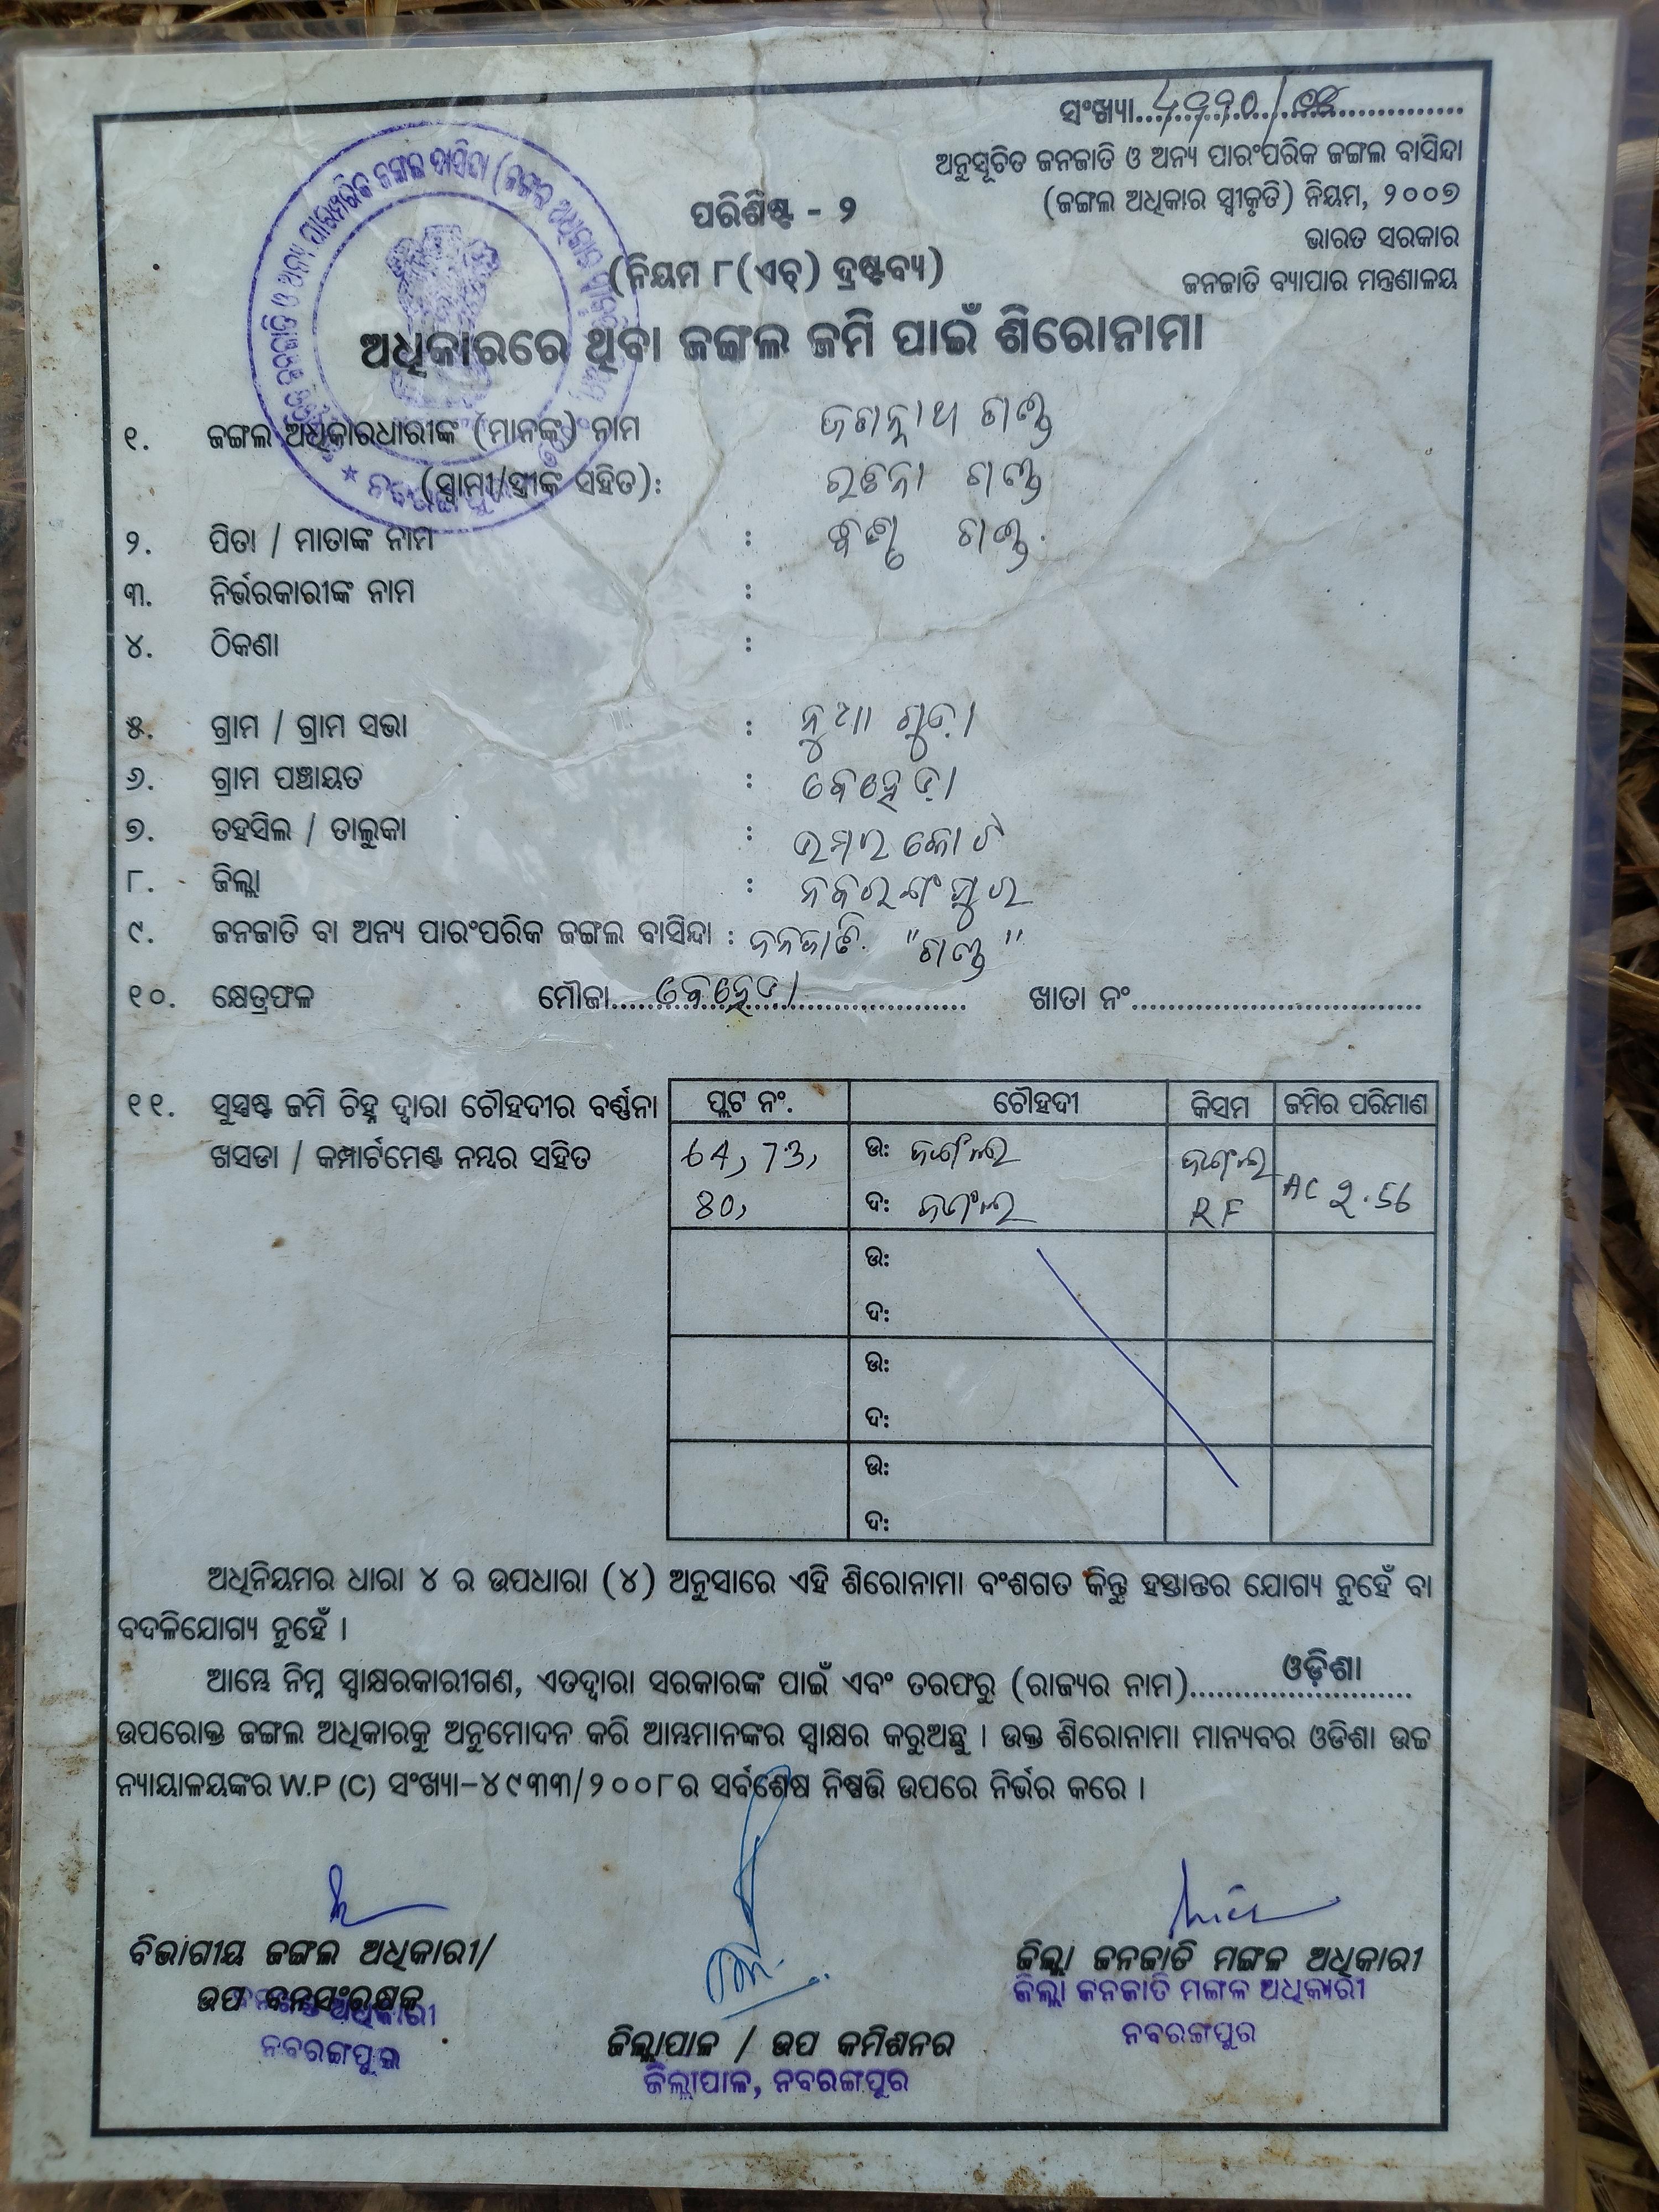 ସଂଖ୍ୟା
ଅନୁସୂଚିତ ଜନଜାତି ଓ ଅନ୍ୟ ପାରଂପରିକ ଜଙ୍ଗଲ ବାସିନ୍ଦା
(ଜଙ୍ଗଲ ଅଧିକାର ସ୍ୱୀକୃତି) ନିୟମ, ୨୦୦୭
ଭାରତ ସରକାର
ଜନଜାତି ବ୍ୟାପାର ମନ୍ତ୍ରଣାଳୟ
ପରିଶିଷ୍ଟ - ୨
(ନିୟମ ୮(ଏଚ୍) ଦ୍ରଷ୍ଟବ୍ୟ)
ଅଧିକାରରେ ଥିବା ଜଙ୍ଗଲ ଜମି ପାଇଁ ଶିରୋନାମା
୧. ଜଙ୍ଗଲ ଅଧିକାରଧାରୀଙ୍କ (ମାନଙ୍କ) ନାମ ଜଗନ୍ନାଥ ଗଣ୍ଡ
(ସ୍ୱାମୀ/ସ୍ତ୍ରୀଙ୍କ ସହିତ): ଗଣ୍ଡ
୨. ପିତା / ମାତାଙ୍କ ନାମ : ଗଣ୍ଡ
୩. ନିର୍ଭରକାରୀଙ୍କ ନାମ :
୪. ଠିକଣା :
୫. ଗ୍ରାମ / ଗ୍ରାମ ସଭା : ନୁଆ ଗୁଡ଼ା
୬. ଗ୍ରାମ ପଞ୍ଚାୟତ : ବେହେଡ଼ା
୭. ତହସିଲ / ତାଲୁକା : ଉମରକୋଟ
୮. ଜିଲ୍ଲା : ନବରଙ୍ଗପୁର
୯. ଜନଜାତି ବା ଅନ୍ୟ ପାରଂପରିକ ଜଙ୍ଗଲ ବାସିନ୍ଦା : ଜନଜାତି. "ଗଣ୍ଡ"
୧୦. କ୍ଷେତ୍ରଫଳ ମୌଜା ବେହେଡ଼ା ଖାତା ନଂ
୧୧. ସୁସ୍ପଷ୍ଟ ଜମି ଚିହ୍ନ ଦ୍ୱାରା ଚୌହଦୀର ବର୍ଣ୍ଣନା
ଖସଡା / କମ୍ପାର୍ଟମେଣ୍ଟ ନମ୍ବର ସହିତ
ପ୍ଲଟ ନଂ. ଚୌହଦୀ କିସମ ଜମିର ପରିମାଣ
64, 73, ଉ: ଜଙ୍ଗଲ ଜଙ୍ଗଲ AC 2.56
80, ଦ: ଜଙ୍ଗଲ RF
ଉ:
ଦ:
ଉ:
ଦ:
ଉ:
ଦ:
ଅଧିନିୟମର ଧାରା ୪ ର ଉପଧାରା (୪) ଅନୁସାରେ ଏହି ଶିରୋନାମା ବଂଶଗତ କିନ୍ତୁ ହସ୍ତାନ୍ତର ଯୋଗ୍ୟ ନୁହେଁ ବା
ବଦଳିଯୋଗ୍ୟ ନୁହେଁ ।
ଆମ୍ଭେ ନିମ୍ନ ସ୍ୱାକ୍ଷରକାରୀଗଣ, ଏତଦ୍ୱାରା ସରକାରଙ୍କ ପାଇଁ ଏବଂ ତରଫରୁ (ରାଜ୍ୟର ନାମ) ଓଡ଼ିଶା
ଉପରୋକ୍ତ ଜଙ୍ଗଲ ଅଧିକାରକୁ ଅନୁମୋଦନ କରି ଆମ୍ଭମାନଙ୍କର ସ୍ୱାକ୍ଷର କରୁଅଛୁ । ଉକ୍ତ ଶିରୋନାମା ମାନ୍ୟବର ଓଡିଶା ଉଚ୍ଚ
ନ୍ୟାୟାଳୟଙ୍କର W.P (C) ସଂଖ୍ୟା-୪୯୩୩/୨୦୦୮ ର ସର୍ବଶେଷ ନିଷ୍ପତ୍ତି ଉପରେ ନିର୍ଭର କରେ ।
ବିଭାଗୀୟ ଜଙ୍ଗଲ ଅଧିକାରୀ/
ଉପ ବନସଂରକ୍ଷକ
ନବରଙ୍ଗପୁର
ଜିଲ୍ଲାପାଳ / ଉପ କମିଶନର
ଜିଲ୍ଲାପାଳ, ନବରଙ୍ଗପୁର
ଜିଲ୍ଲା ଜନଜାତି ମଙ୍ଗଳ ଅଧିକାରୀ
ଜିଲ୍ଲା ଜନଜାତି ମଙ୍ଗଳ ଅଧିକାରୀ
ନବରଙ୍ଗପୁର